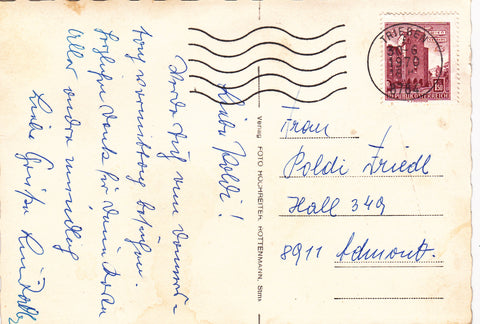 Liebe Poldi!
Werde Dich am Donners-
tag vormittag besuchen.
Herzlichen Dank für Deine
Alles andere mündlich
Liebe Grüße
Verlag FOTO HOCHREITER, ROTTENMANN, Stmk
TRIEBEN
1979
8784
REPUBLIK ÖSTERREICH
Frau
Poldi Friedl
Hall 349
8911 Admont